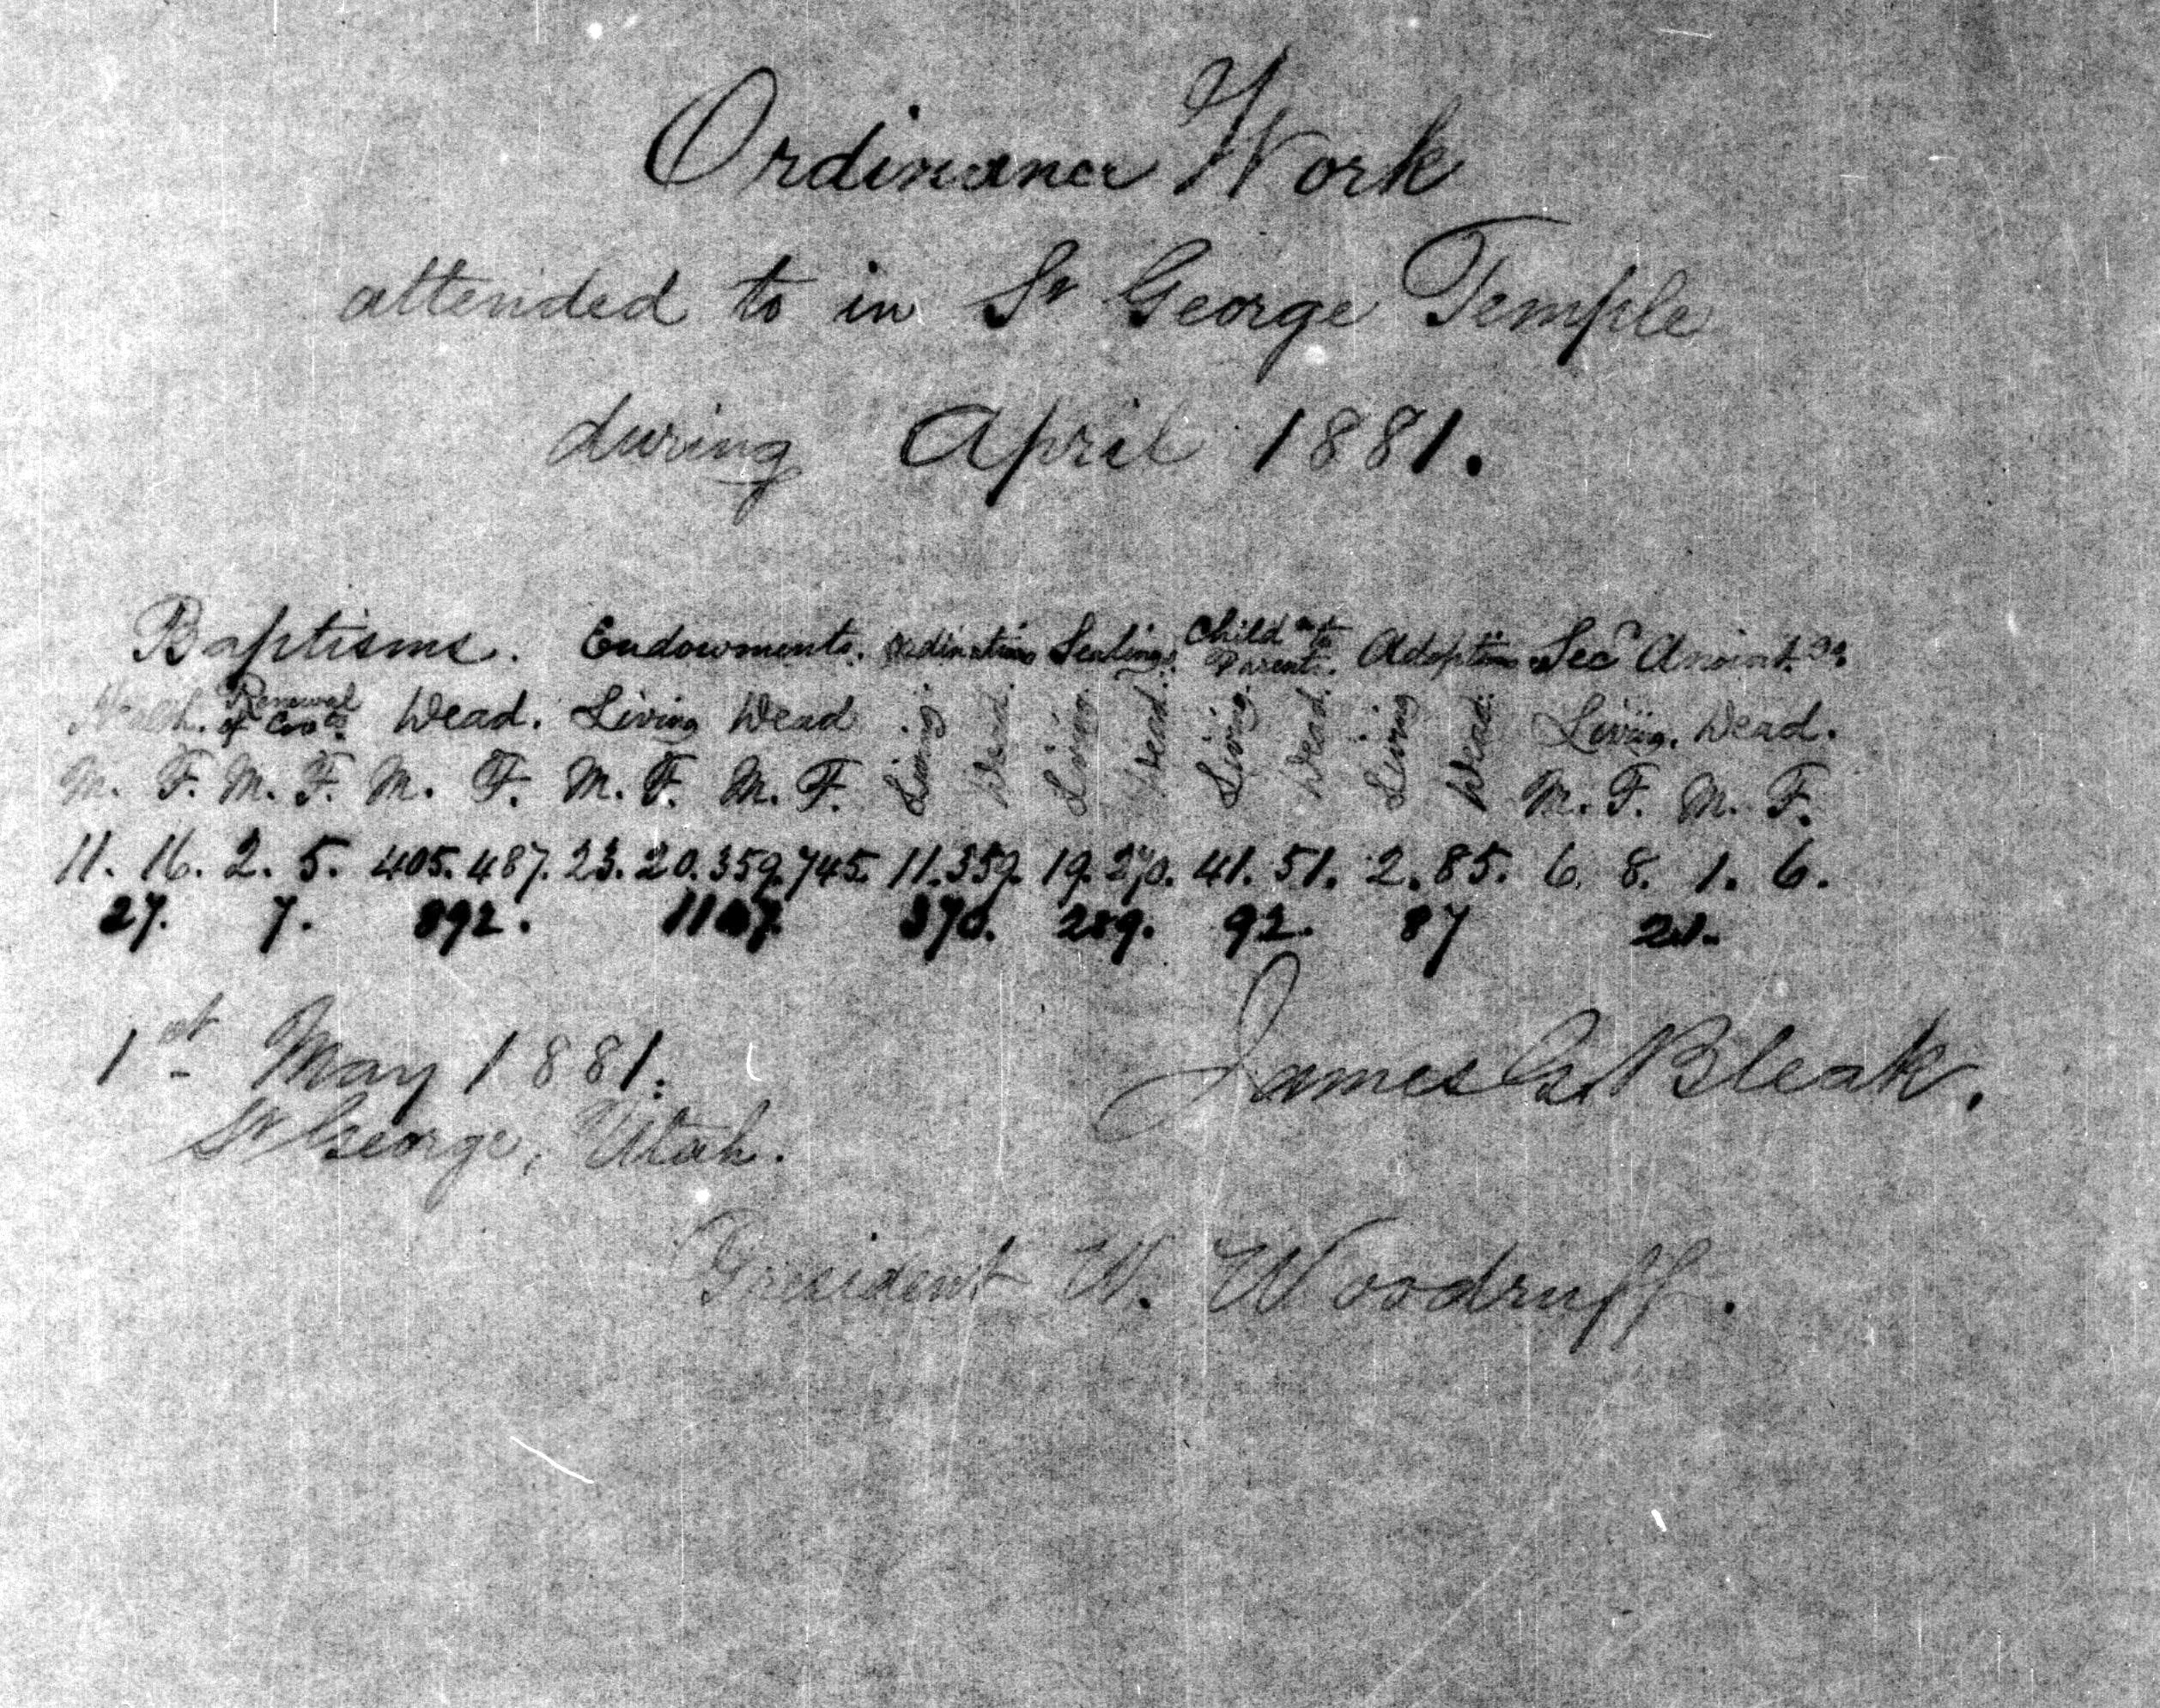 Ordinance Work
attended to in St George Temple
during April 1881.
Baptisms. Endowments. Ordinations Sealings. Child to Parents. Adoptions Sec Anoint.gs
Health. Renewal of Covts. Dead. Living Dead Living. Dead. Living. Dead. Living. Dead. Living Dead. Living. Dead.
M. F. M. F. M. F. M. F. M. F. M. F. M. F.
11. 16. 2. 5. 405. 487. 23. 20. 359. 745. 11. 359. 19. 270. 41. 51. 2. 85. 6. 8. 1. 6.
27. 7. 892. 1147. 370. 289. 92. 87 21.
1st May 1881. James G. Bleak.
St George, Utah.
President W. Woodruff.